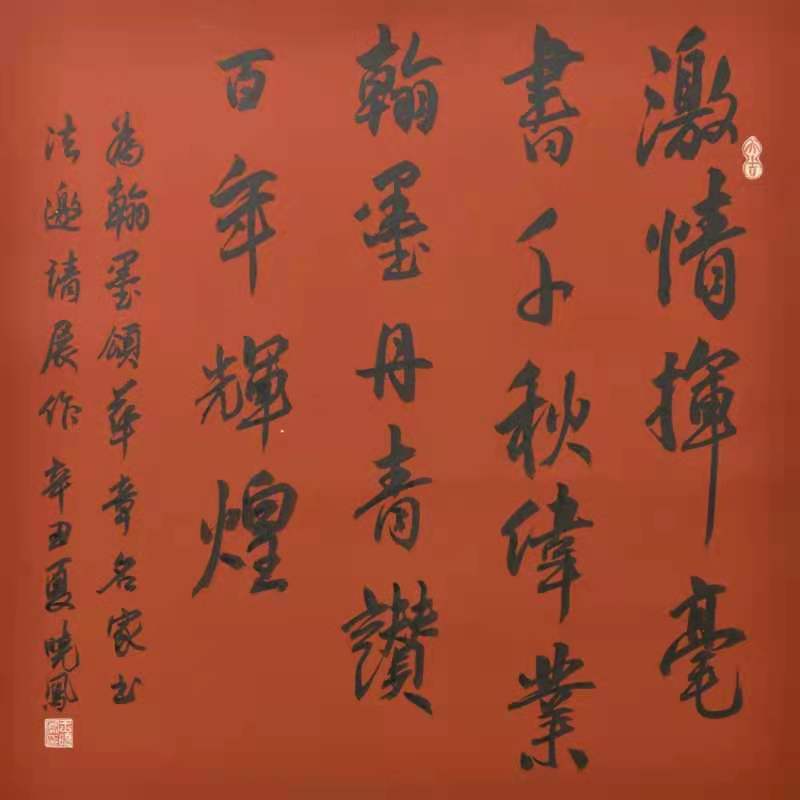 激情揮毫
書千秋偉業
翰墨丹青讚
百年輝煌
為翰墨頌華章名家书
法邀請展作 辛丑夏曉鳳
大吉